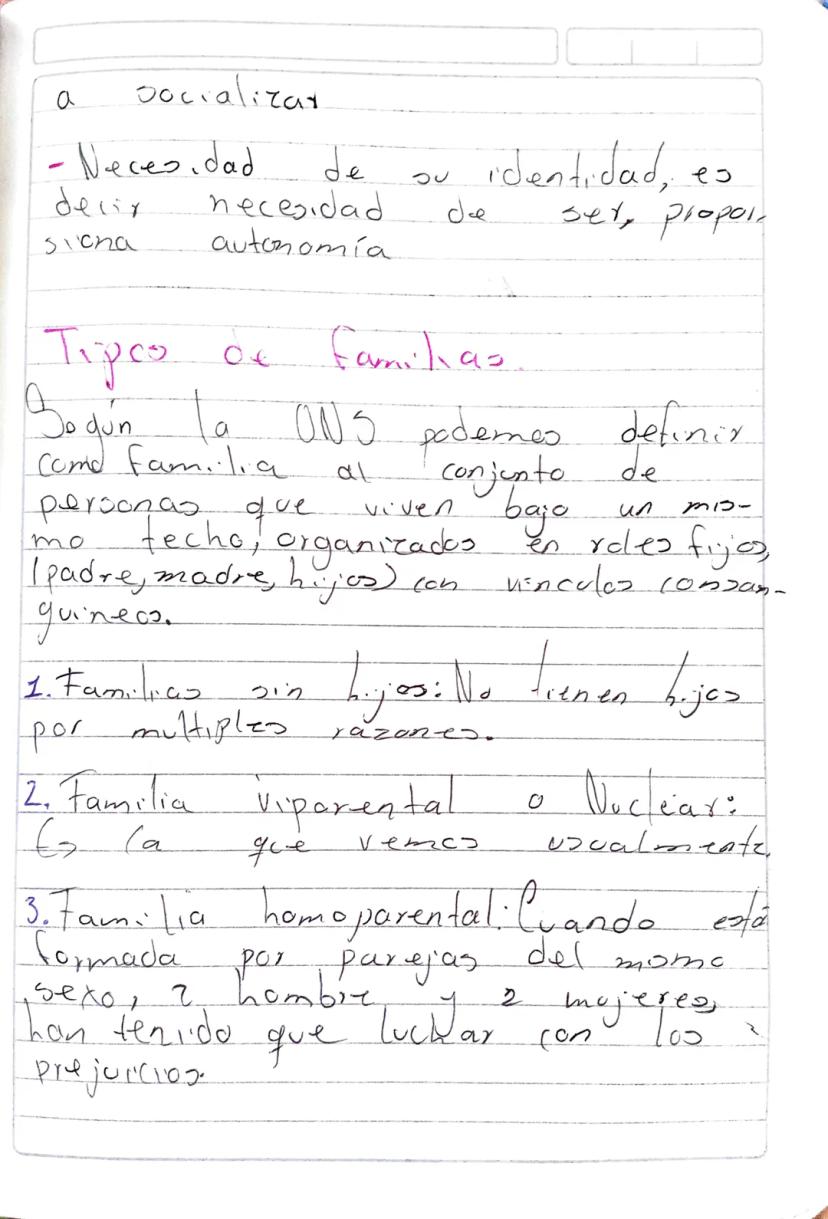 a socializar
- Necesidad de su identidad, es
decir necesidad de ser, propor-
siona autonomía
Tipos de familias.
Según la ONS podemos definir
como familia al conjunto de
personas que viven bajo un mis-
mo techo, organizados en roles fijos,
(padre, madre, hijos) con vínculos consan-
guineos.
1. Familias sin hijos: No tienen hijos
por multiples razones.
2. Familia viparental o Nuclear:
Es la que vemos usualmente.
3. Familia homoparental: Cuando está
formada por parejas del mismo
sexo, 2 hombre y 2 mujeres,
han tenido que luchar con los
prejuicios.